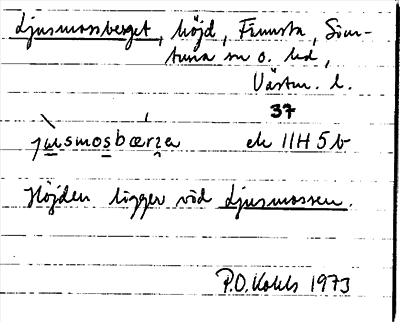 Ljusmossberget, höjd, Finnsta, Sim-
tuna sn o. hd,
Västm. l.
37
jusmosbærᶎa ek 11H 5b
Höjden ligger vid Ljusmossen.
P.O. 1973